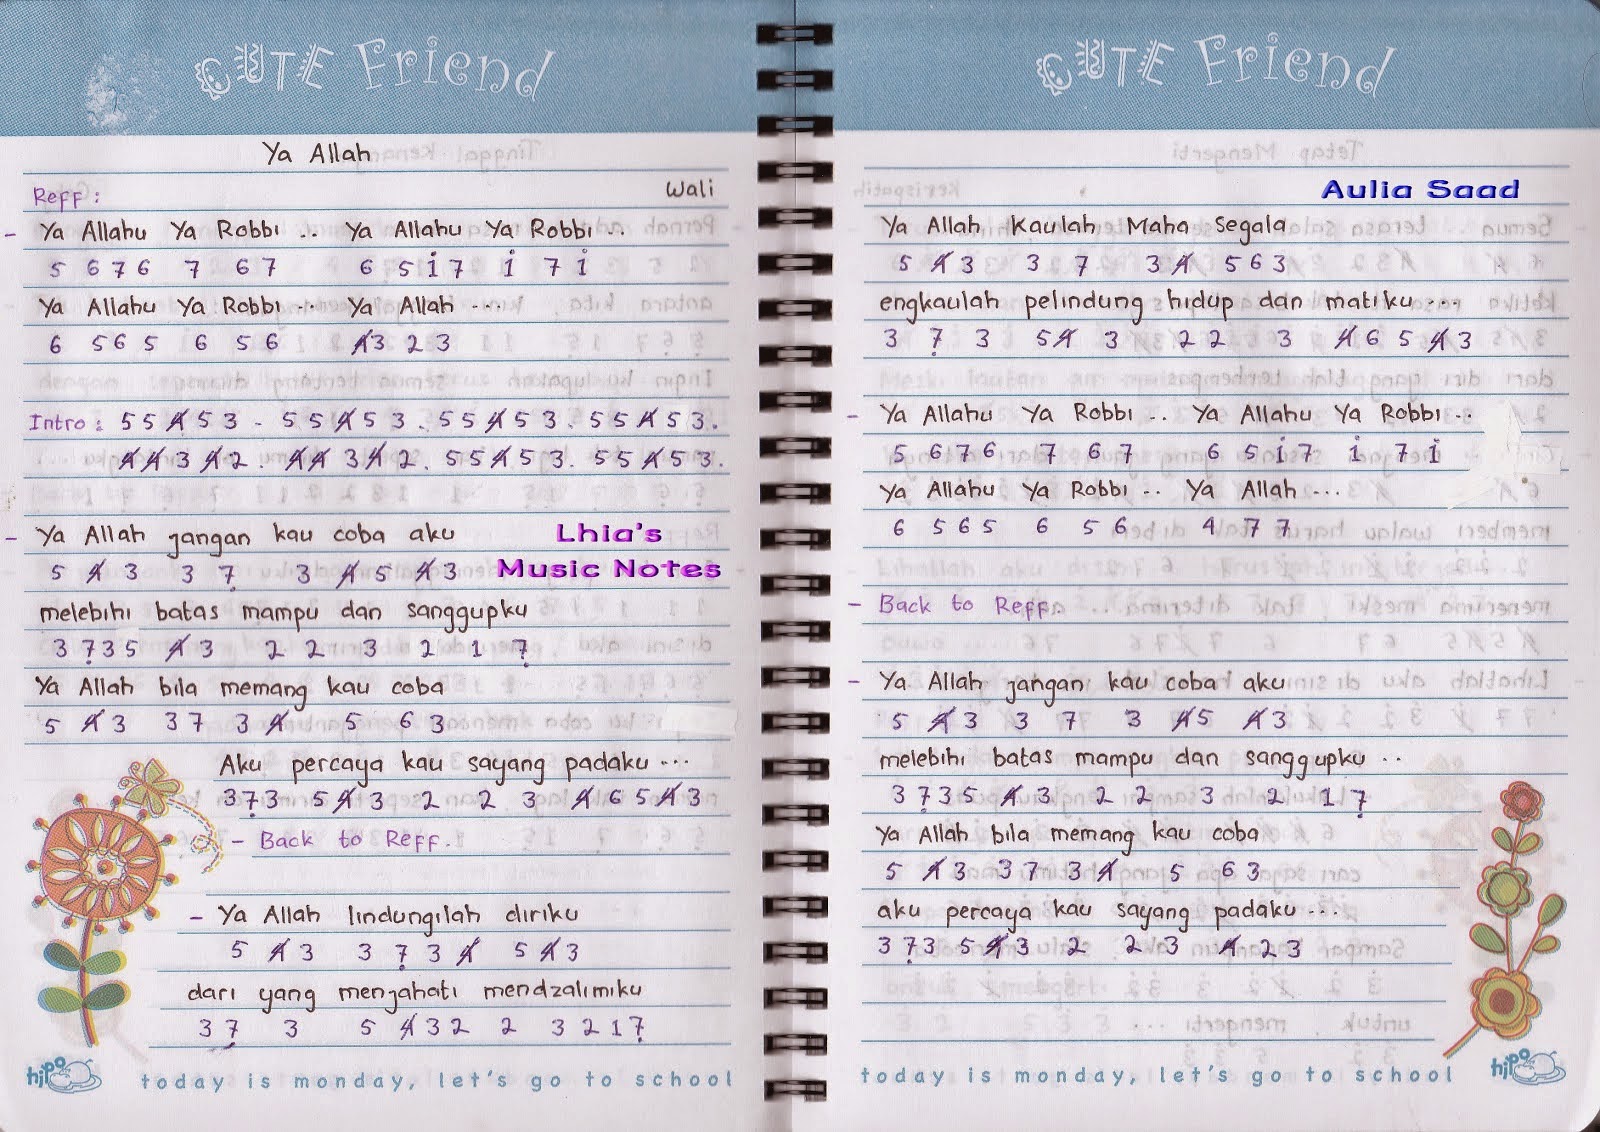 CUTE Friend
Ya Allah
Reff: Wali
- Ya Allahu Ya Robbi .. Ya Allahu Ya Robbi ..
5 6 7 6 7 6 7 6 5 i 7 i 7 i
Ya Allahu Ya Robbi ... Ya Allah ....
6 5 6 5 6 5 6 4 3 2 3
Intro: 5 5 4 5 3 - 5 5 4 5 3 . 5 5 4 5 3 . 5 5 4 5 3 .
4 4 3 4 2 . 4 4 3 4 2 . 5 5 4 5 3 . 5 5 4 5 3 .
- Ya Allah jangan kau coba aku Lhia's
5 4 3 3 7 3 4 5 4 3 Music Notes
melebihi batas mampu dan sanggupku
3 7 3 5 4 3 2 2 3 2 1 7
Ya Allah bila memang kau coba
5 4 3 3 7 3 4 5 6 3
Aku percaya kau sayang padaku ...
3 7 3 5 4 3 2 2 3 4 6 5 4 3
- Back to Reff.
- Ya Allah lindungilah diriku
5 4 3 3 7 3 4 5 4 3
dari yang menjahati mendzalimiku
3 7 3 5 4 3 2 2 3 2 1 7
hipo
today is monday, let's go to school
CUTE Friend
Aulia Saad
Ya Allah Kaulah Maha Segala
5 4 3 3 7 3 4 5 6 3
engkaulah pelindung hidup dan matiku ....
3 7 3 5 4 3 2 2 3 4 6 5 4 3
- Ya Allahu Ya Robbi .. Ya Allahu Ya Robbi ..
5 6 7 6 7 6 7 6 5 i 7 i 7 i
Ya Allahu Ya Robbi .. Ya Allah ...
6 5 6 5 6 5 6 4 7 7
- Back to Reff.
- Ya Allah jangan kau coba aku
5 4 3 3 7 3 4 5 4 3
melebihi batas mampu dan sanggupku ..
3 7 3 5 4 3 2 2 3 2 1 7
Ya Allah bila memang kau coba
5 4 3 3 7 3 4 5 6 3
aku percaya kau sayang padaku ...
3 7 3 5 4 3 2 2 3 4 2 3
today is monday, let's go to school
hipo